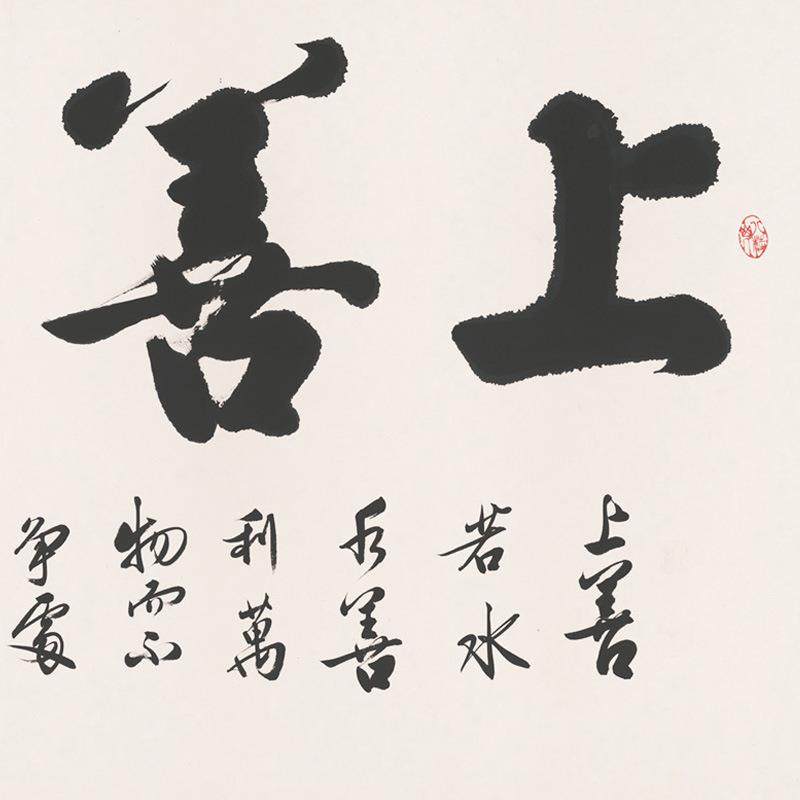 上善
上善
若水
水善
利萬
物而不
争處